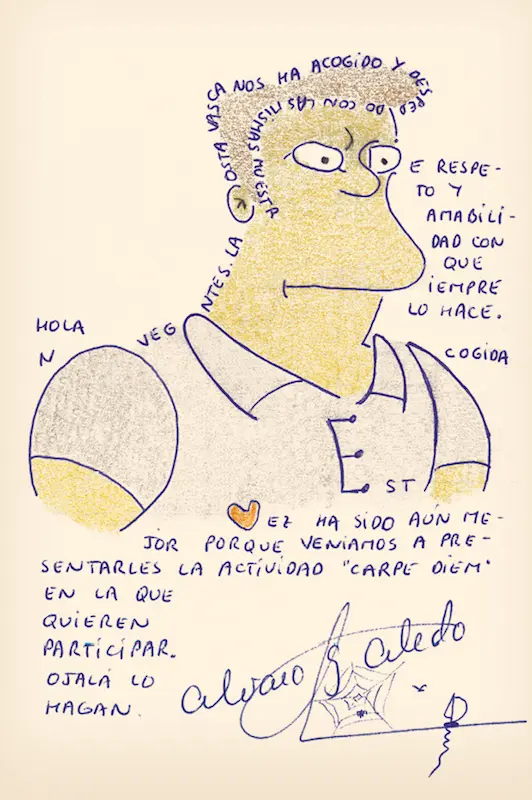 HOLA
N
VEG
NTES. LA
OSTA VASCA NOS HA ACOGIDO Y DESPED
DO CON LAS MISMAS MUESTA
E RESPE-
TO Y
AMABILI-
DAD CON
QUE
IEMPRE
LO HACE.
COGIDA
ST
EZ HA SIDO AÚN ME-
JOR PORQUE VENÍAMOS A PRE-
SENTARLES LA ACTIVIDAD "CARPE DIEM"
EN LA QUE
QUIEREN
PARTICIPAR.
OJALÁ LO
HAGAN.
alvaro G aledo